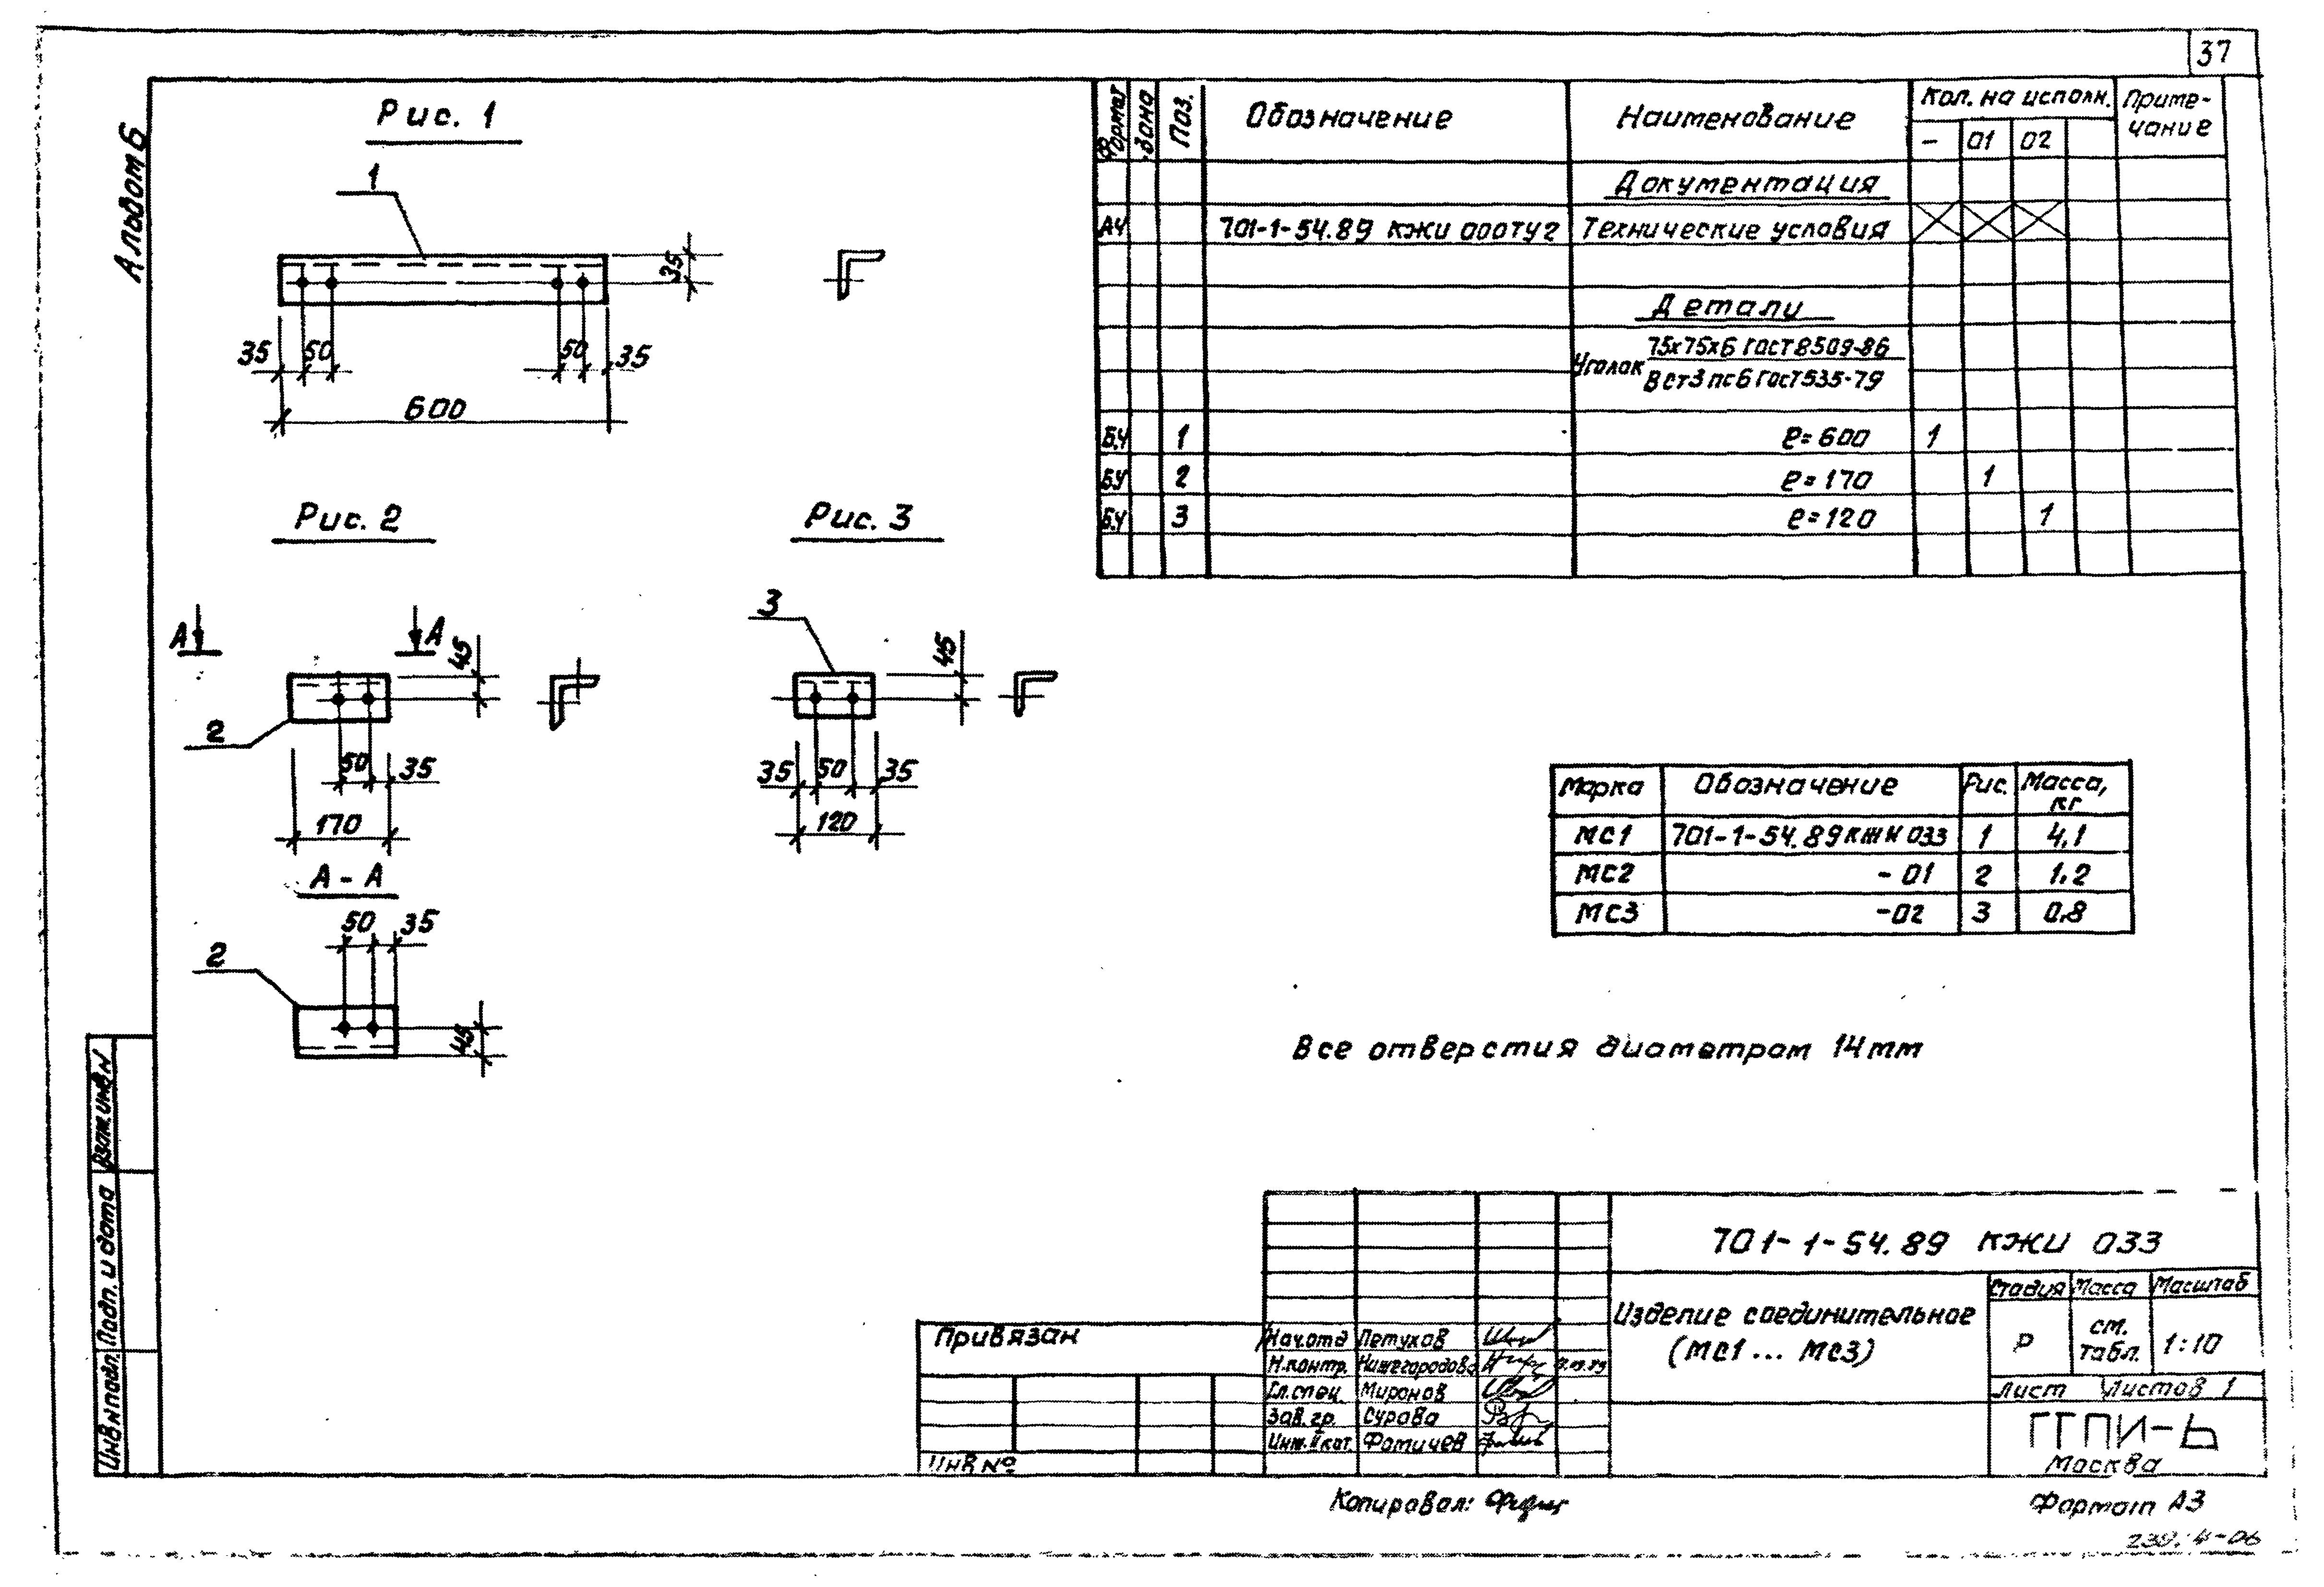 37
Альбом 6
Рис. 1
1
35
35 50 50 35
600
Рис. 2
А А
45
2
50 35
170
А - А
50 35
2
45
Рис. 3
3
45
35 50 35
120
Формат Зона Поз. Обозначение Наименование Кол. на исполн. Приме-
чание
- 01 02
Документация
А4 701-1-54.89 КЖИ 000ТУ2 Технические условия
Детали
Уголок 75х75х6 ГОСТ 8509-86
В ст3 пс6 ГОСТ 535-79
Б.Ч 1 ℓ=600 1
БЧ 2 ℓ=170 1
Б.Ч 3 ℓ=120 1
Марка Обозначение Рис. Масса,
кг
МС1 701-1-54.89 КЖИ 033 1 4,1
МС2 - 01 2 1.2
МС3 -02 3 0.8
Все отверстия диаметром 14мм
Взам.инв.N
Подп. и дата
Инв.N подл.
701-1-54.89 КЖИ 033
Изделие соединительное
(МС1 ... МС3)
Стадия Масса Масштаб
Р см.
табл. 1:10
Лист Листов 1
ГПИ-6
Москва
Привязан
Инв №
Нач.отд Петухов
Н.контр. Нижегородова
Гл.спец. Миронов
Зав. гр. Сурова
Инж. II кат Фомичев
Копировал:
Формат А3